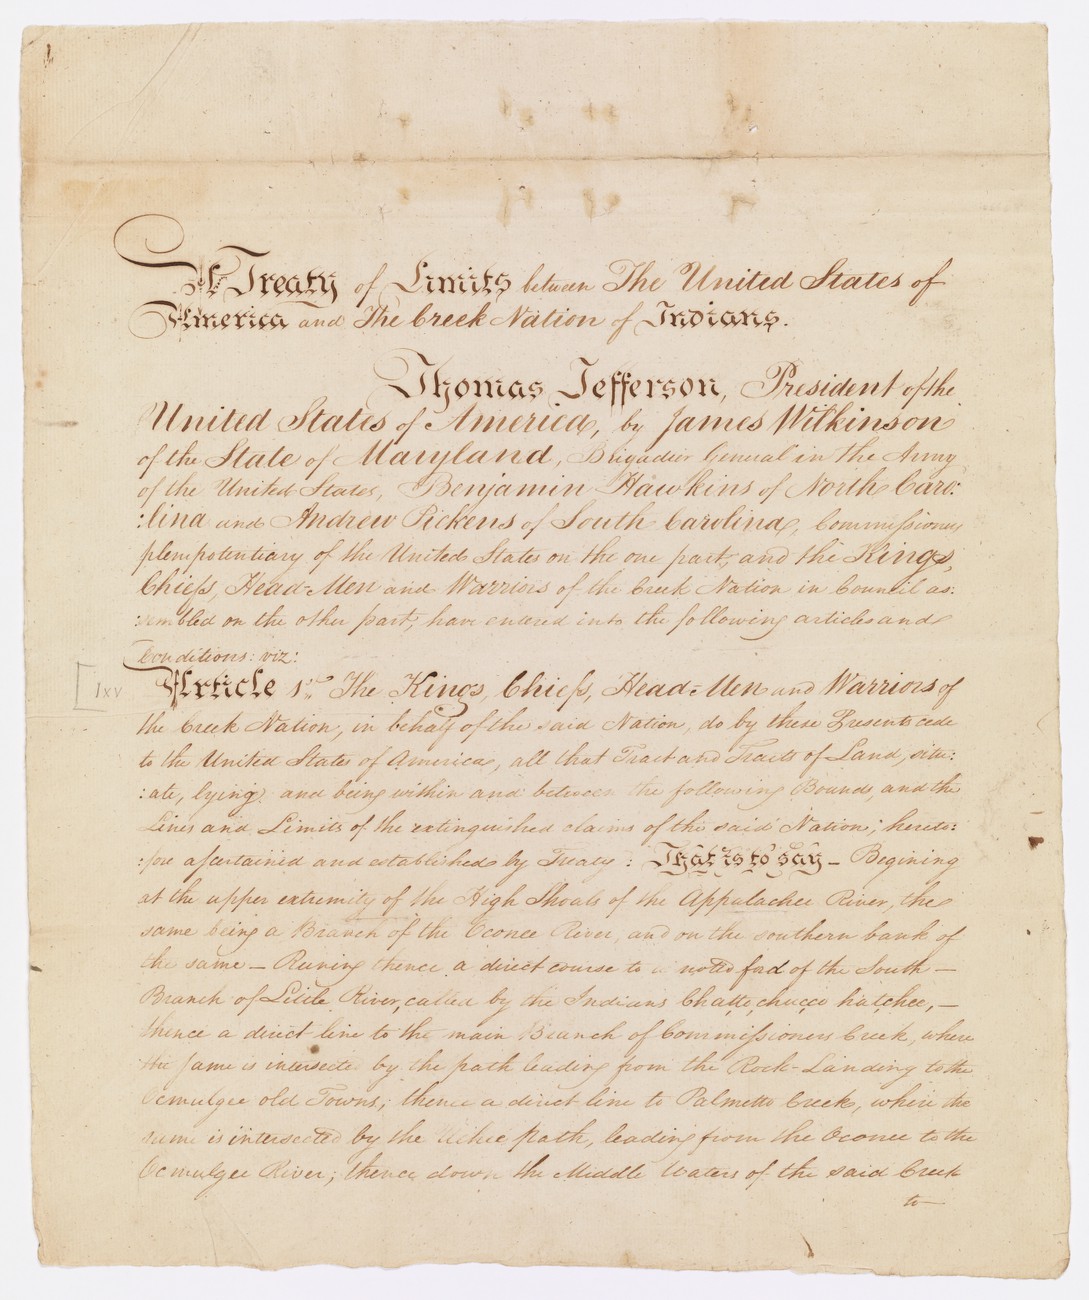 A Treaty of Limits between The United States of
America and The Creek Nation of Indians.
Thomas Jefferson, President of the
United States of America, by James Wilkinson
of the State of Maryland, Brigadier General in the Army
of the United States, Benjamin Hawkins of North Caro:
:lina and Andrew Pickens of South Carolina, Commissioners
plenipotentiary of the United States on the one part, and the Kings,
Chiefs, Head-Men and Warriors of the Creek Nation in Council as:
:sembled on the other part, have entered into the following articles and
Conditions: viz:
[ 1xv
Article 1st. The Kings, Chiefs, Head-Men and Warriors of
the Creek Nation, in behalf of the said Nation, do by these Presents cede
to the United States of America, all that Tract and Tracts of Land, situ:
:ate, lying and being within and between the following Bounds, and the
Lines and Limits of the extinguished claims of the said Nation; hereto:
:fore ascertained and established by Treaty: That is to say – Begining
at the upper extremity of the High Shoals of the Appalachee River, the
same being a Branch of the Oconee River, and on the southern bank of
the same – Runing thence a direct course to a noted ford of the South –
Branch of Little River, called by the Indians Chatto, chucco hatchee, –
thence a direct line to the main Branch of Commissioners Creek, where
the same is intersected by the path leading from the Rock-Landing to the
Ocmulgee old Towns; thence a direct line to Palmetto Creek, where the
same is intersected by the Uchee path, leading from the Oconee to the
Ocmulgee River; thence down the Middle Waters of the said Creek
to